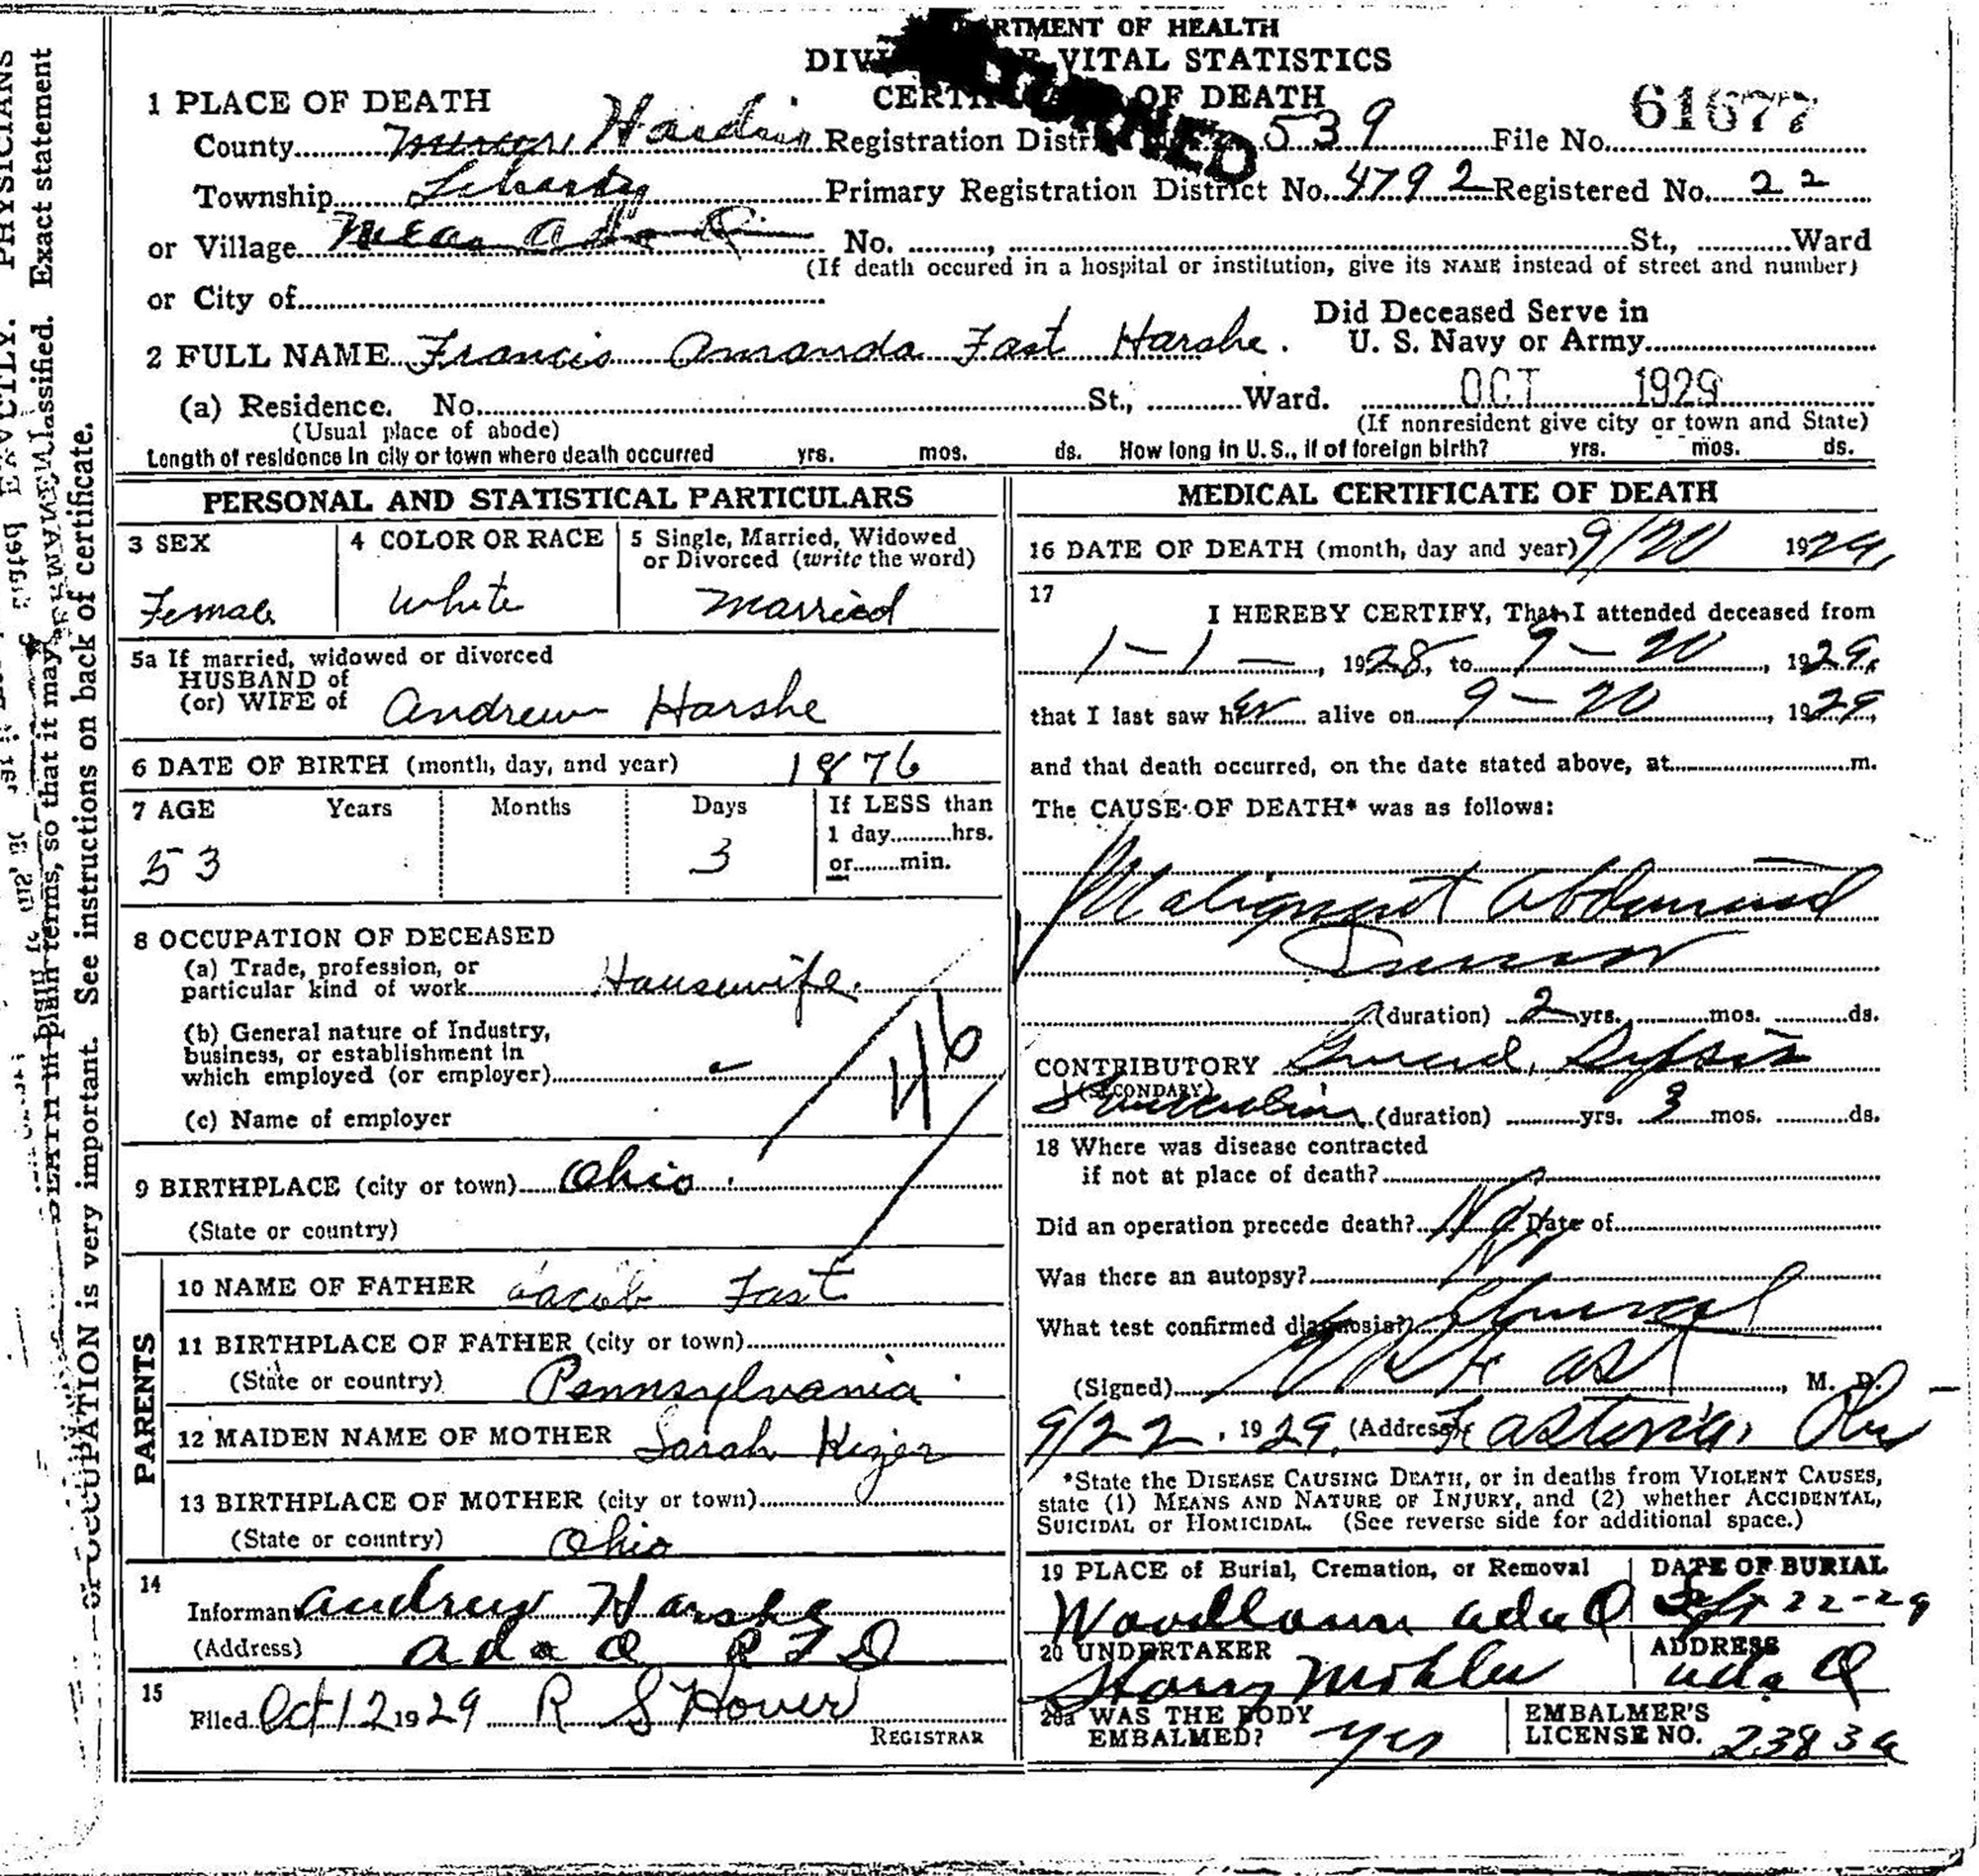 RTMENT OF HEALTH
DIV VITAL STATISTICS
CERTI OF DEATH
1 PLACE OF DEATH
61677
County Hardin Registration District 539 File No.
Township Liberty Primary Registration District No. 4792 Registered No. 22
or Village Near Ada O No. , St., Ward
(If death occured in a hospital or institution, give its NAME instead of street and number)
or City of
Did Deceased Serve in
U. S. Navy or Army
2 FULL NAME Francis Amanda Fast Harshe.
OCT 1929
(a) Residence. No. St., Ward.
(Usual place of abode) (If nonresident give city or town and State)
Length of residence in city or town where death occurred yrs. mos. ds. How long in U. S., if of foreign birth? yrs. mos. ds.
PERSONAL AND STATISTICAL PARTICULARS
3 SEX
Female
4 COLOR OR RACE
White
5 Single, Married, Widowed
or Divorced (write the word)
Married
5a If married, widowed or divorced
HUSBAND of
(or) WIFE of Andrew Harshe
6 DATE OF BIRTH (month, day, and year) 1876
7 AGE Years Months Days If LESS than
1 day hrs.
or min.
53 3
8 OCCUPATION OF DECEASED
(a) Trade, profession, or
particular kind of work Housewife.
(b) General nature of Industry,
business, or establishment in
which employed (or employer)
46
(c) Name of employer
9 BIRTHPLACE (city or town) Ohio.
(State or country)
PARENTS
10 NAME OF FATHER Jacob Fast
11 BIRTHPLACE OF FATHER (city or town)
(State or country) Pennsylvania
12 MAIDEN NAME OF MOTHER Sarah Kizer
13 BIRTHPLACE OF MOTHER (city or town)
(State or country) Ohio
14
Informant Andrew Harshe
(Address) Ada O RFD
15
Filed Oct 12 1929 R S Hover
REGISTRAR
MEDICAL CERTIFICATE OF DEATH
16 DATE OF DEATH (month, day and year) 9/20 1929
17
I HEREBY CERTIFY, That I attended deceased from
1-1-, 1928, to 9-20, 1929,
that I last saw her alive on 9-20, 1929,
and that death occurred, on the date stated above, at m.
The CAUSE OF DEATH* was as follows:
Malignant Abdominal
Tumor
(duration) 2 yrs. mos. ds.
CONTRIBUTORY
(SECONDARY)
(duration) yrs. 3 mos. ds.
18 Where was disease contracted
if not at place of death?
Did an operation precede death? No Date of
Was there an autopsy?
What test confirmed diagnosis?
(Signed) Fast, M. D.
9/22, 1929 (Address)
*State the DISEASE CAUSING DEATH, or in deaths from VIOLENT CAUSES,
state (1) MEANS AND NATURE OF INJURY, and (2) whether ACCIDENTAL,
SUICIDAL or HOMICIDAL. (See reverse side for additional space.)
19 PLACE of Burial, Cremation, or Removal
Woodlawn Ada O
DATE OF BURIAL
Sept 22-29
20 UNDERTAKER
Harry Mohler
ADDRESS
Ada O
20a WAS THE BODY
EMBALMED? Yes
EMBALMER'S
LICENSE NO. 2383a
OCCUPATION is very important. See instructions on back of certificate.
in plain terms, so that it may
assified. Exact statement
PHYSICIANS